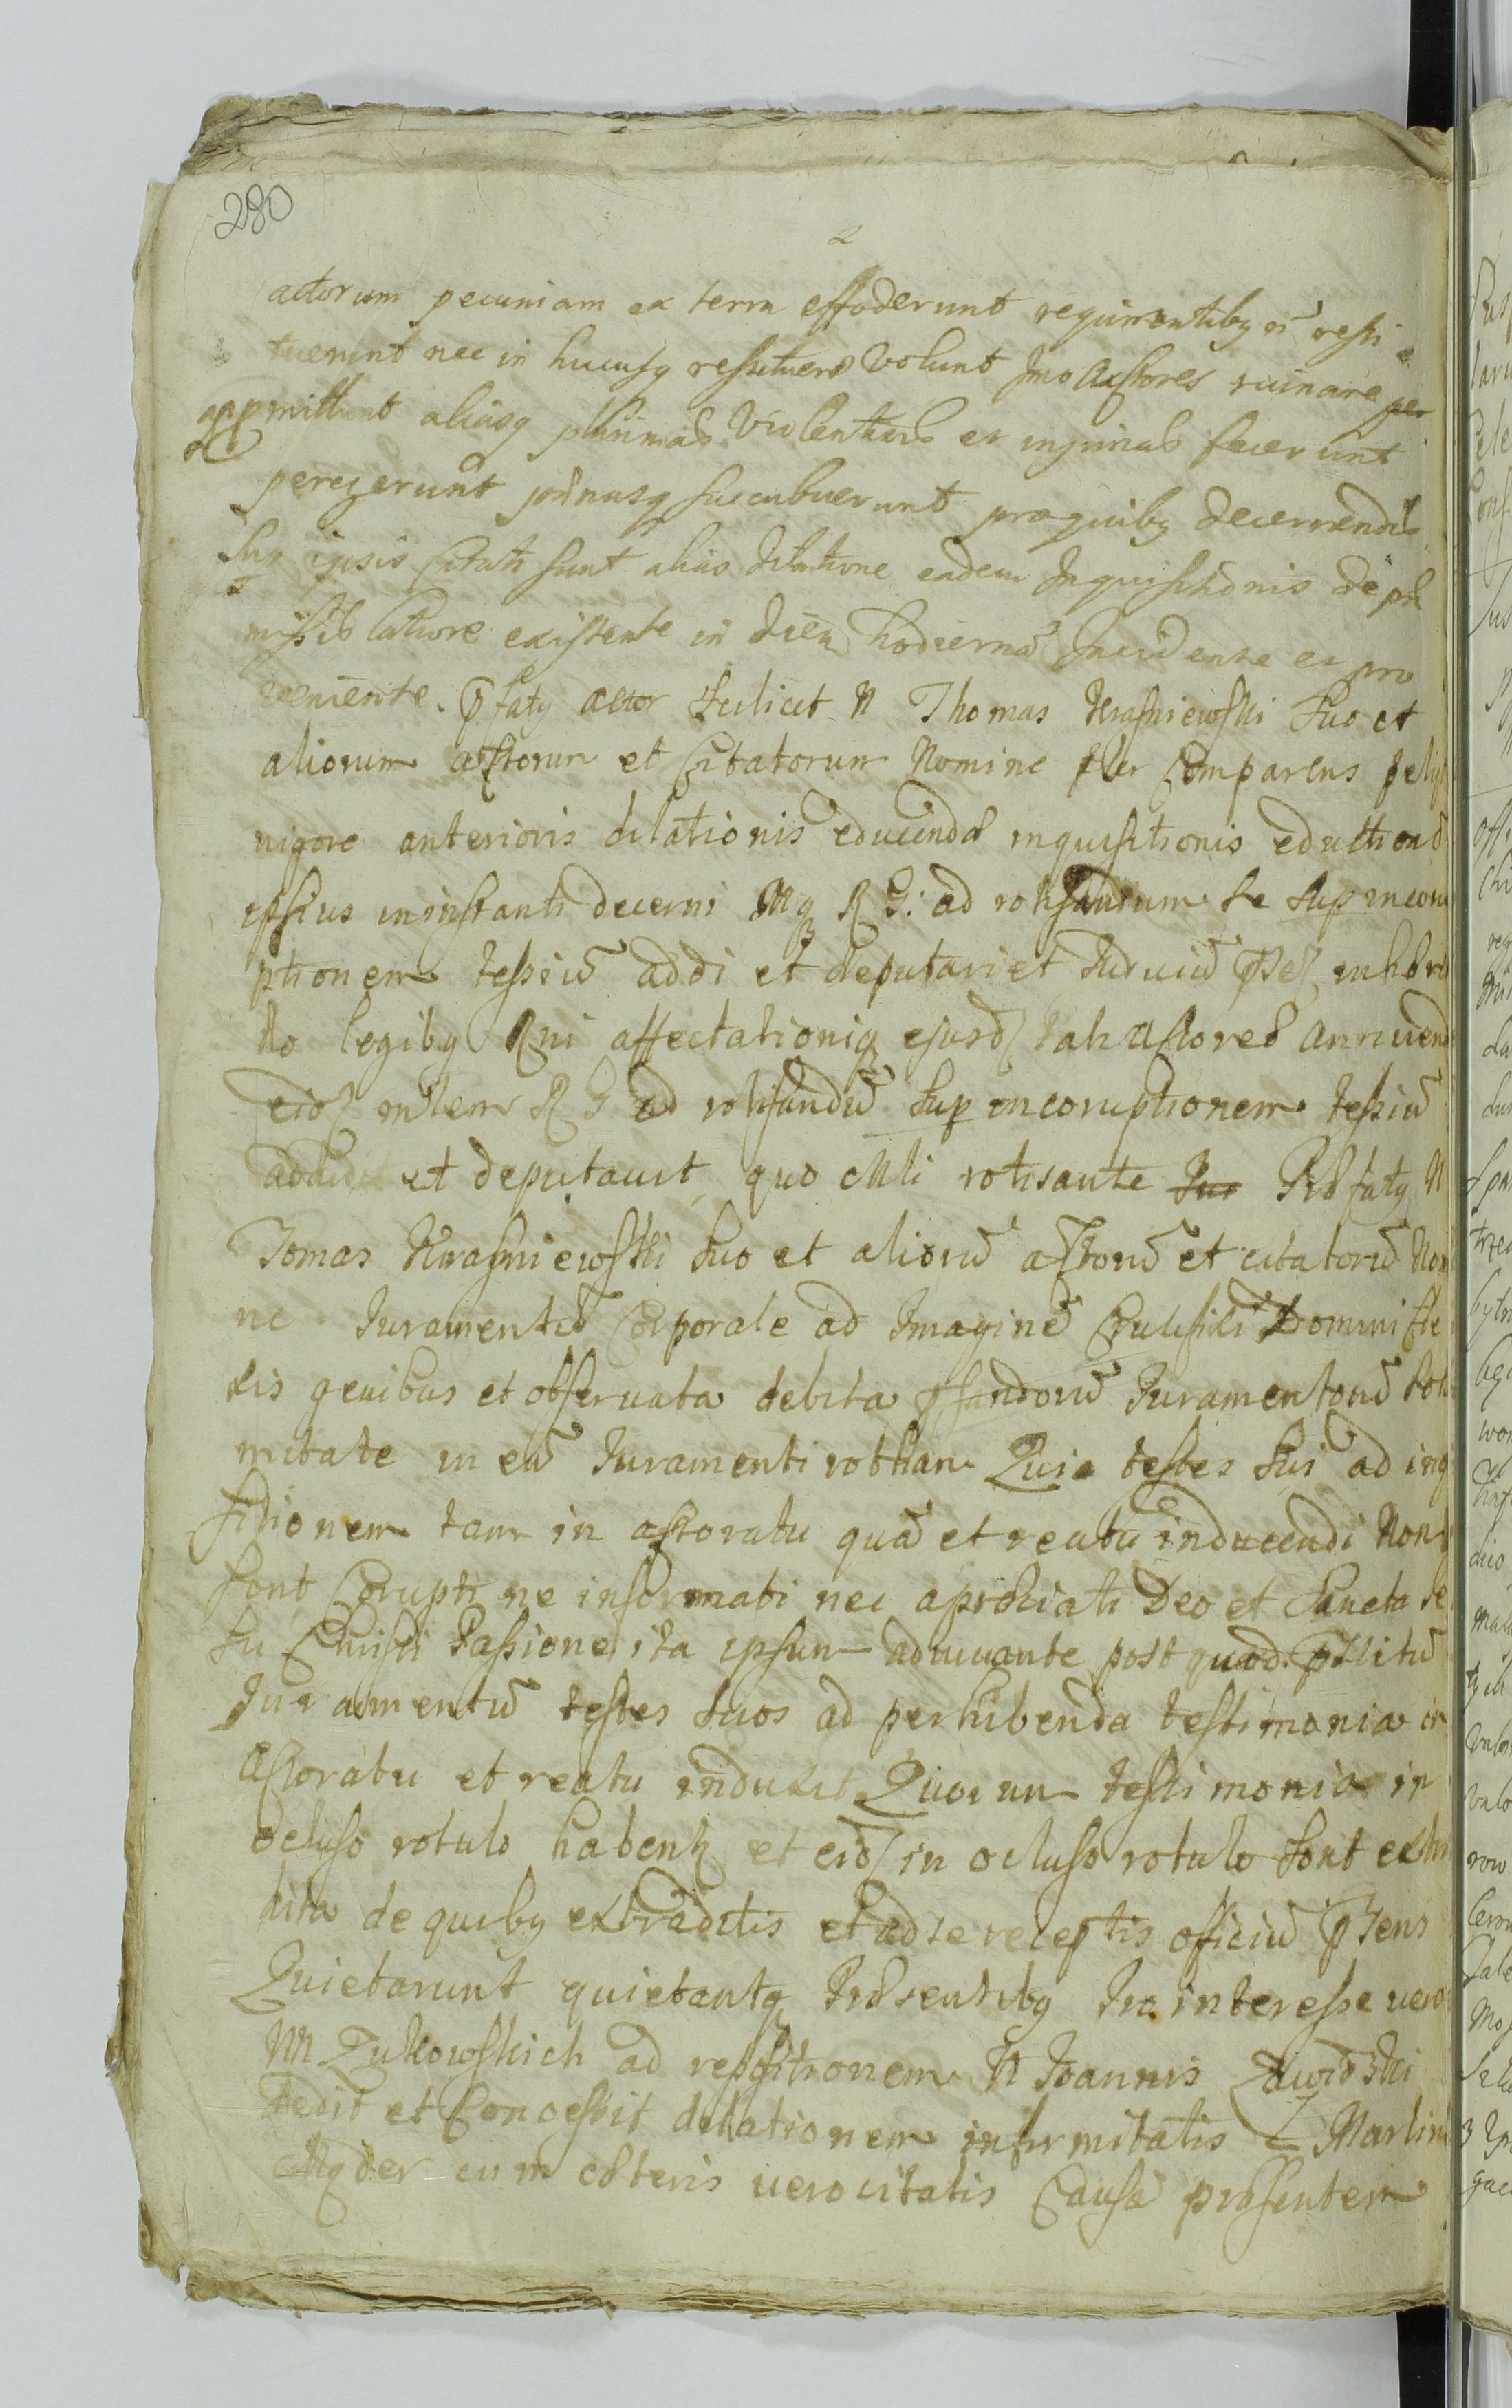 280
2
actorum pecuniam ex terra effoderunt requirentibq nō resti
tuerunt nec in hucusq restituere volunt Imo Actores ruinare per
oppmittunt aliasq plurimas violentias et injurias fecerunt
peregerunt pœnasq succubuerunt pro quibq decernendis
Sup ipsis Citati sunt alias dilatione eadem Inquisitionis de præ
missis latiore existente in diem hodiernā Incidente et pro
veniente. Pfatq actor scilicet N Thomas Kraśniewski Suo et
aliorum actorum et Citatorum Nomine pler Comparens
vigore anterioris dilationis educendæ inquisitionis eductionē
ipsius in instanti decerni Mg R G: ad rotisandum se sup incoru
ptionem testiū addi et deputari et Iudiciū inhæren
do legibq Rni affectationiq ejusd tali actores annuend
eid R G ad rotisandū Sup incoruptionem testiū
addidit et deputavit quo Mli rotisante Præfatq N
Tomas Kraśniewski Suo et aliorū actorū et citatorū Nomi
ne Iuramentū Corporale ad Imaginē Crucifixi Domini fle
xis genibus et observata debita Iuramentorū sole
nitate in eā Iuramenti rotham Quia testes Sui ad inqui
sitionem tam in actoratu quā et reatu inducendi Non
sont Corupti ne informati nec apretiati Deo et Sancta Je
su Christi Passione ita ipsum adiuvante post quod pstitū
Iuramentū testes suos ad perhibenda testimonia in
actoratu et reatu induxit Quorum testimonia in
ocluso rotulo habent et eid in ocluso rotulo sont extra
dita de quibq extraditis et ad se receptis officiū psens
Quietarunt quietantq Præsentibq In interesse vero
NN Zukowskich ad repositionem N Joannis Zawidzki
dedit et Concessit dilationem infirmitatis Martini
Mqder cum cæteris vero citatis Causā præsentem